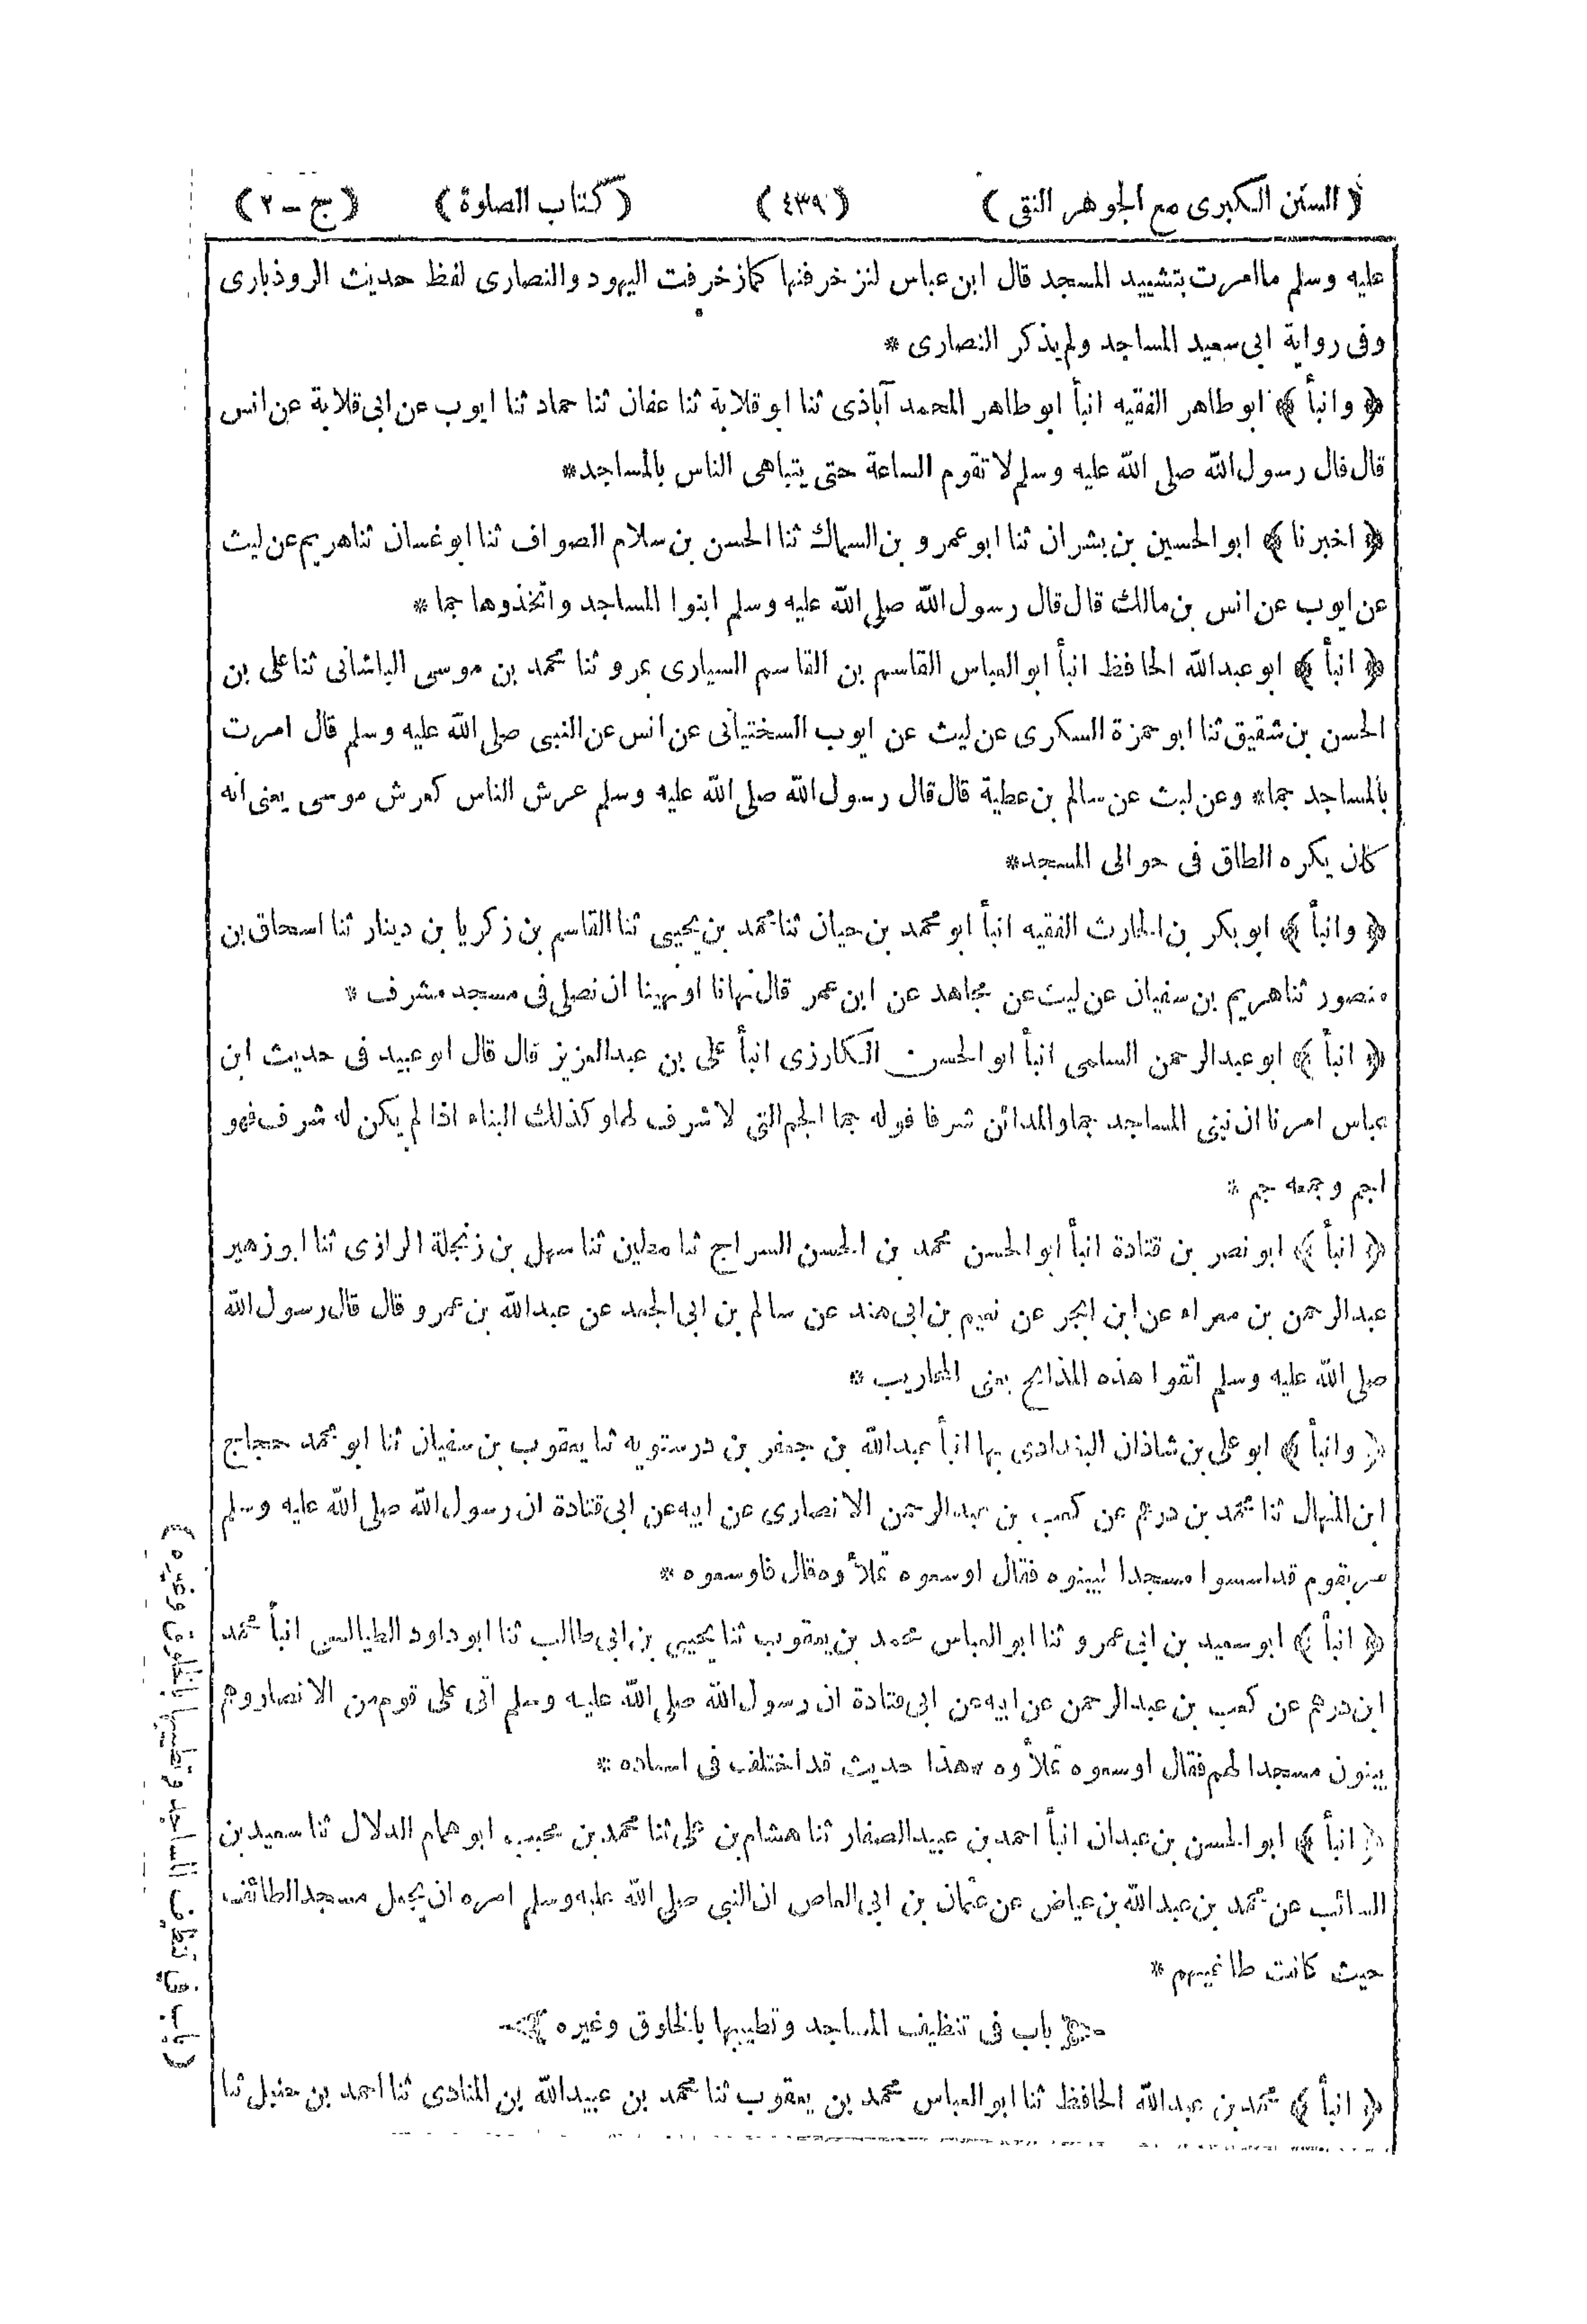 (السنن الكبرى مع الجوهر النقى) (٤٣٩) (كتاب الصلوة) (ج - ٢)
عليه وسلم ماامرت بتشييد المسجد قال ابن عباس لنزخرفنها كمازخرفت اليهود والنصارى لفظ حديث الروذبارى
وفى رواية ابى سعيد المساجد ولم يذكر النصارى *
﴿ وانبأ ﴾ ابو طاهر الفقيه انبأ ابو طاهر المحمد آباذى ثنا ابو قلابة ثنا عفان ثنا حماد ثنا ايوب عن ابى قلابة عن انس
قال قال رسول الله صلى الله عليه وسلم لا تقوم الساعة حتى يتباهى الناس بالمساجد *
﴿ اخبرنا ﴾ ابو الحسين بن بشران ثنا ابو عمرو بن السماك ثنا الحسن بن سلام الصواف ثنا ابو غسان ثنا هريم عن ليث
عن ايوب عن انس بن مالك قال قال رسول الله صلى الله عليه وسلم ابنوا المساجد واتخذوها جما *
﴿ انبأ ﴾ ابو عبد الله الحافظ انبأ ابو العباس القاسم بن القاسم السيارى بمرو ثنا محمد بن موسى الباشانى ثنا على بن
الحسن بن شقيق ثنا ابو حمزة السكرى عن ليث عن ايوب السختيانى عن انس عن النبى صلى الله عليه وسلم قال امرت
بالمساجد جما * وعن ليث عن سالم بن عطية قال قال رسول الله صلى الله عليه وسلم عرش الناس كعرش موسى يعنى انه
كان يكره الطاق فى حوالى المسجد *
﴿ وانبأ ﴾ ابو بكر بن الحارث الفقيه انبأ ابو محمد بن حيان ثنا محمد بن يحيى ثنا القاسم بن زكريا بن دينار ثنا اسحاق بن
منصور ثنا هريم بن سفيان عن ليث عن مجاهد عن ابن عمر قال نهانا او نهينا ان نصلى فى مسجد مشرف *
﴿ انبأ ﴾ ابو عبد الرحمن السلمى انبأ ابو الحسن الكارزى انبأ على بن عبد العزيز قال قال ابو عبيد فى حديث ابن
عباس امرنا ان نبنى المساجد جما والمدائن شرفا قوله جما الجم التى لا شرف لها وكذلك البناء اذا لم يكن له شرف فهو
اجم وجمعه جم *
﴿ انبأ ﴾ ابو نصر بن قتادة انبأ ابو الحسن محمد بن الحسن السراج ثنا مطين ثنا سهل بن زنجلة الرازى ثنا ابو زهير
عبد الرحمن بن مغراء عن ابن ابجر عن نعيم بن ابى هند عن سالم بن ابى الجعد عن عبد الله بن عمرو قال قال رسول الله
صلى الله عليه وسلم اتقوا هذه المذابح يعنى المحاريب *
﴿ وانبأ ﴾ ابو على بن شاذان البغدادى بها انبأ عبد الله بن جعفر بن درستويه ثنا يعقوب بن سفيان ثنا ابو محمد حجاج
ابن المنهال ثنا محمد بن درهم عن كعب بن عبد الرحمن الانصارى عن ابيه عن ابى قتادة ان رسول الله صلى الله عليه وسلم
مر بقوم قد اسسوا مسجدا ليبنوه فقال اوسعوه تملأوه قال فاوسعوه *
﴿ انبأ ﴾ ابو سعيد بن ابى عمرو ثنا ابو العباس محمد بن يعقوب ثنا يحيى بن ابى طالب ثنا ابو داود الطيالسى انبأ محمد
ابن درهم عن كعب بن عبد الرحمن عن ابيه عن ابى قتادة ان رسول الله صلى الله عليه وسلم اتى على قوم من الانصار وهم
يبنون مسجدا لهم فقال اوسعوه تملأوه * هذا حديث قد اختلف فى اسناده *
﴿ انبأ ﴾ ابو الحسن بن عبدان انبأ احمد بن عبيد الصفار ثنا هشام بن على ثنا محمد بن محبب ابو همام الدلال ثنا سعيد بن
السائب عن محمد بن عبد الله بن عياض عن عثمان بن ابى العاص ان النبى صلى الله عليه وسلم امره ان يجعل مسجد الطائف
حيث كانت طاغيتهم *
باب فى تنظيف المساجد وتطييبها بالخلوق وغيره
﴿ انبأ ﴾ محمد بن عبد الله الحافظ ثنا ابو العباس محمد بن يعقوب ثنا محمد بن عبيد الله بن المنادى ثنا احمد بن حنبل ثنا
(باب فى تنظيف المساجد وتطييبها بالخلوق وغيره)